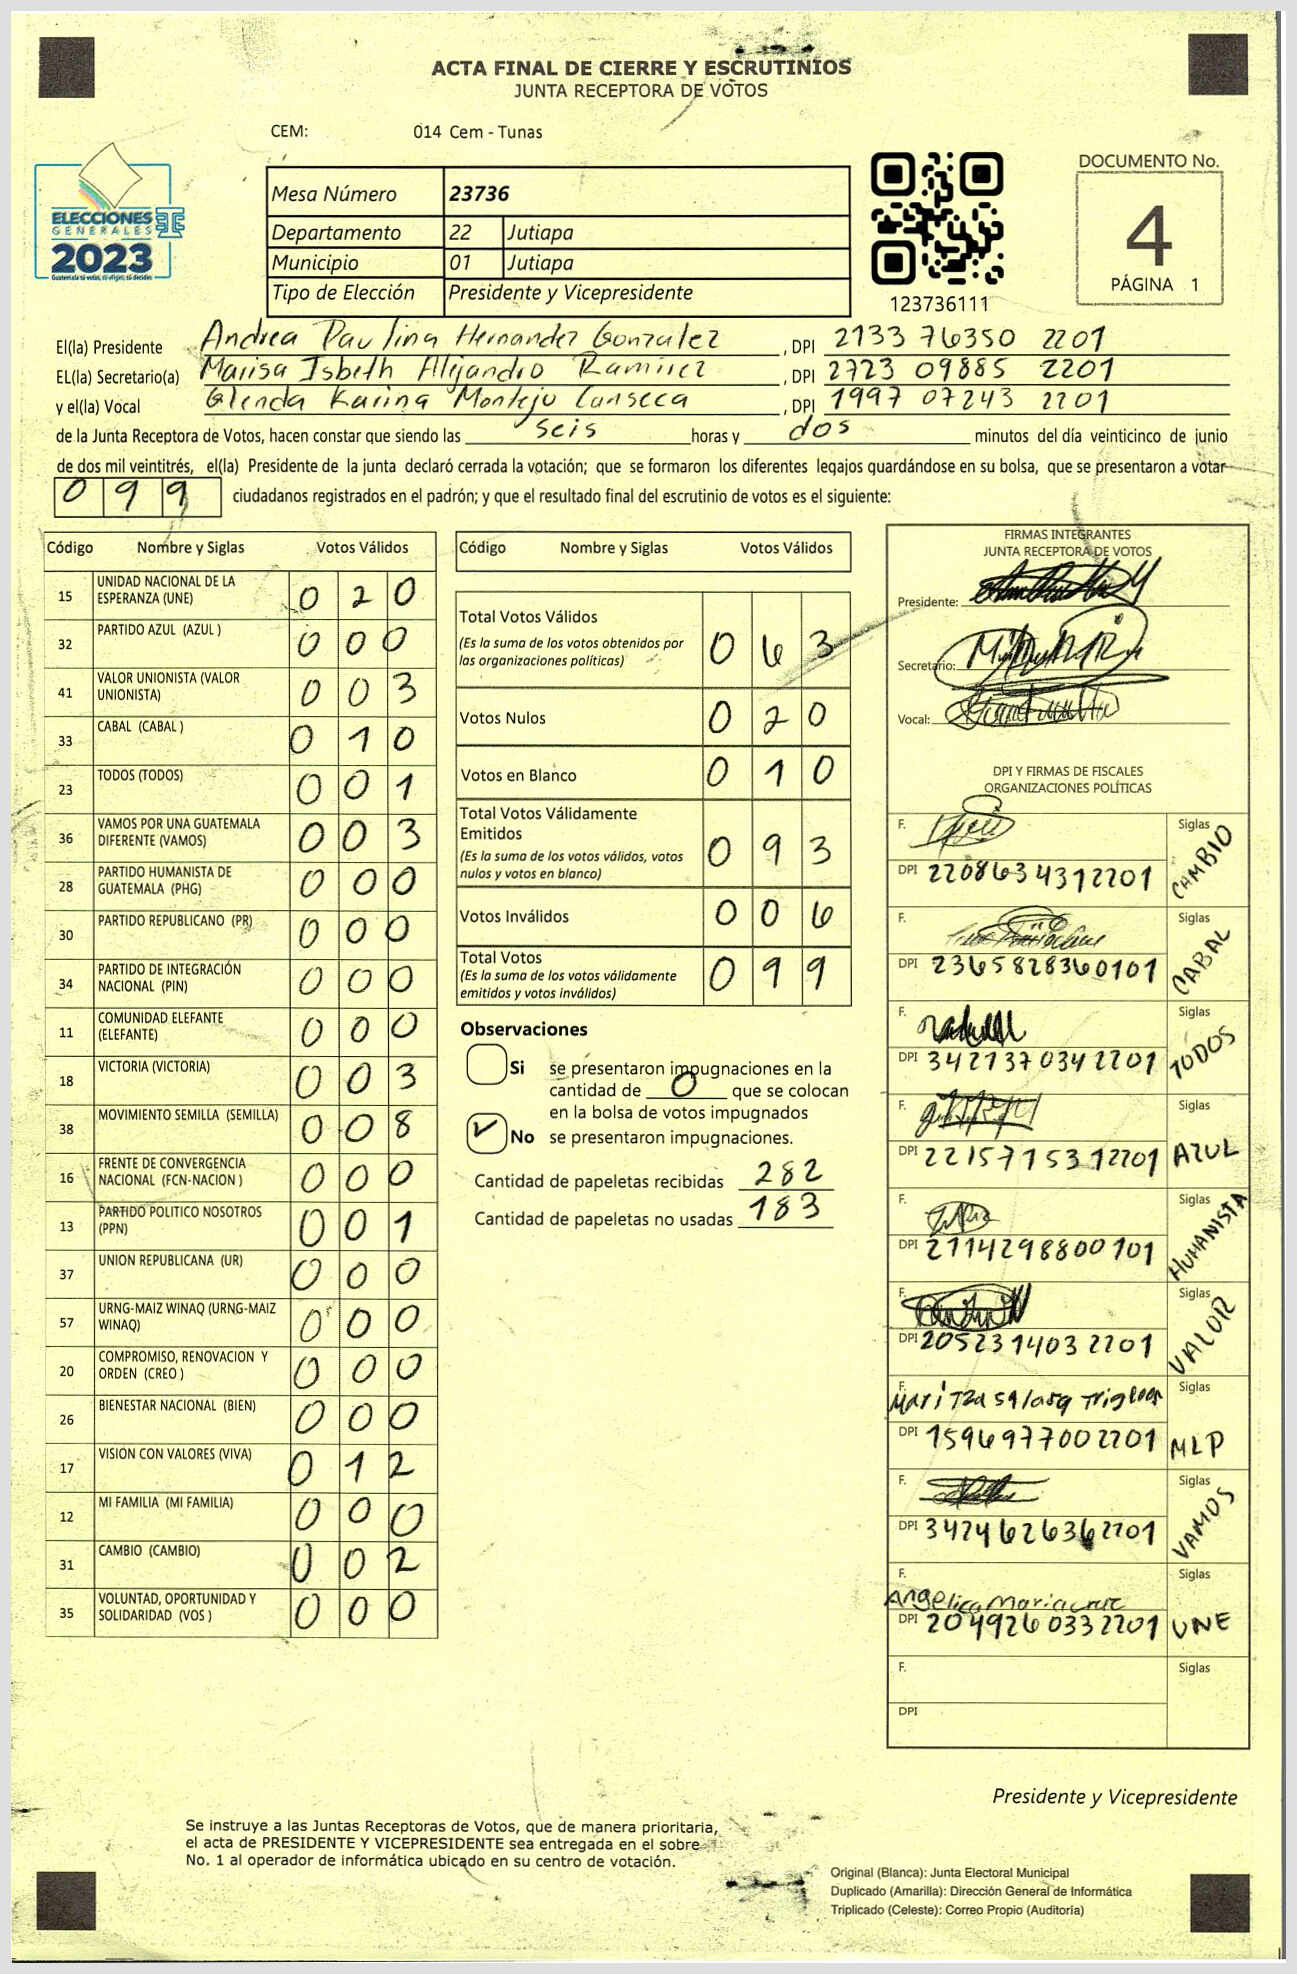 ACTA FINAL DE CIERRE Y ESCRUTINIOS
JUNTA RECEPTORA DE VOTOS
CEM: 014 Cem - Tunas
ELECCIONES
GENERALES
2023
Guatemala tú votas, tú eliges, tú decides
Mesa Número 23736
Departamento 22 Jutiapa
Municipio 01 Jutiapa
Tipo de Elección Presidente y Vicepresidente
123736111
DOCUMENTO No.
4
PÁGINA 1
El(la) Presidente Andrea Paulina Hernandez Gonzalez , DPI 2133 76350 2201
EL(la) Secretario(a) Marisa Isbeth Alejandro Ramirez , DPI 2723 09885 2201
y el(la) Vocal Glenda Karina Montejo Fonseca , DPI 1997 07243 2201
de la Junta Receptora de Votos, hacen constar que siendo las seis horas y dos minutos del día veinticinco de junio
de dos mil veintitrés, el(la) Presidente de la junta declaró cerrada la votación; que se formaron los diferentes legajos guardándose en su bolsa, que se presentaron a votar
099 ciudadanos registrados en el padrón; y que el resultado final del escrutinio de votos es el siguiente:
Código Nombre y Siglas Votos Válidos
15 UNIDAD NACIONAL DE LA ESPERANZA (UNE) 020
32 PARTIDO AZUL (AZUL ) 000
41 VALOR UNIONISTA (VALOR UNIONISTA) 003
33 CABAL (CABAL ) 010
23 TODOS (TODOS) 001
36 VAMOS POR UNA GUATEMALA DIFERENTE (VAMOS) 003
28 PARTIDO HUMANISTA DE GUATEMALA (PHG) 000
30 PARTIDO REPUBLICANO (PR) 000
34 PARTIDO DE INTEGRACIÓN NACIONAL (PIN) 000
11 COMUNIDAD ELEFANTE (ELEFANTE) 000
18 VICTORIA (VICTORIA) 003
38 MOVIMIENTO SEMILLA (SEMILLA) 008
16 FRENTE DE CONVERGENCIA NACIONAL (FCN-NACION ) 000
13 PARTIDO POLITICO NOSOTROS (PPN) 001
37 UNION REPUBLICANA (UR) 000
57 URNG-MAIZ WINAQ (URNG-MAIZ WINAQ) 000
20 COMPROMISO, RENOVACION Y ORDEN (CREO ) 000
26 BIENESTAR NACIONAL (BIEN) 000
17 VISION CON VALORES (VIVA) 012
12 MI FAMILIA (MI FAMILIA) 000
31 CAMBIO (CAMBIO) 002
35 VOLUNTAD, OPORTUNIDAD Y SOLIDARIDAD (VOS ) 000
Código Nombre y Siglas Votos Válidos
Total Votos Válidos 063
(Es la suma de los votos obtenidos por las organizaciones políticas)
Votos Nulos 020
Votos en Blanco 010
Total Votos Válidamente Emitidos 093
(Es la suma de los votos válidos, votos nulos y votos en blanco)
Votos Inválidos 006
Total Votos 099
(Es la suma de los votos válidamente emitidos y votos inválidos)
Observaciones
Si se presentaron impugnaciones en la
cantidad de 0 que se colocan
en la bolsa de votos impugnados
No se presentaron impugnaciones.
Cantidad de papeletas recibidas 282
Cantidad de papeletas no usadas 183
FIRMAS INTEGRANTES
JUNTA RECEPTORA DE VOTOS
Presidente:
Secretario:
Vocal:
DPI Y FIRMAS DE FISCALES
ORGANIZACIONES POLÍTICAS
F. Siglas CAMBIO
DPI 2208634312201
F. Siglas CABAL
DPI 2365828360101
F. Siglas TODOS
DPI 3421370342201
F. Siglas AZUL
DPI 2215715312201
F. Siglas HUMANISTA
DPI 2114298800101
F. Siglas VALOR
DPI 2052314032201
F. Maritza Siglas MLP
DPI 1596977002201
F. Siglas VAMOS
DPI 3424626362201
F. Angelica Maria cruz Siglas UNE
DPI 2049260332201
F. Siglas
DPI
Presidente y Vicepresidente
Se instruye a las Juntas Receptoras de Votos, que de manera prioritaria,
el acta de PRESIDENTE Y VICEPRESIDENTE sea entregada en el sobre
No. 1 al operador de informática ubicado en su centro de votación.
Original (Blanca): Junta Electoral Municipal
Duplicado (Amarilla): Dirección General de Informática
Triplicado (Celeste): Correo Propio (Auditoría)